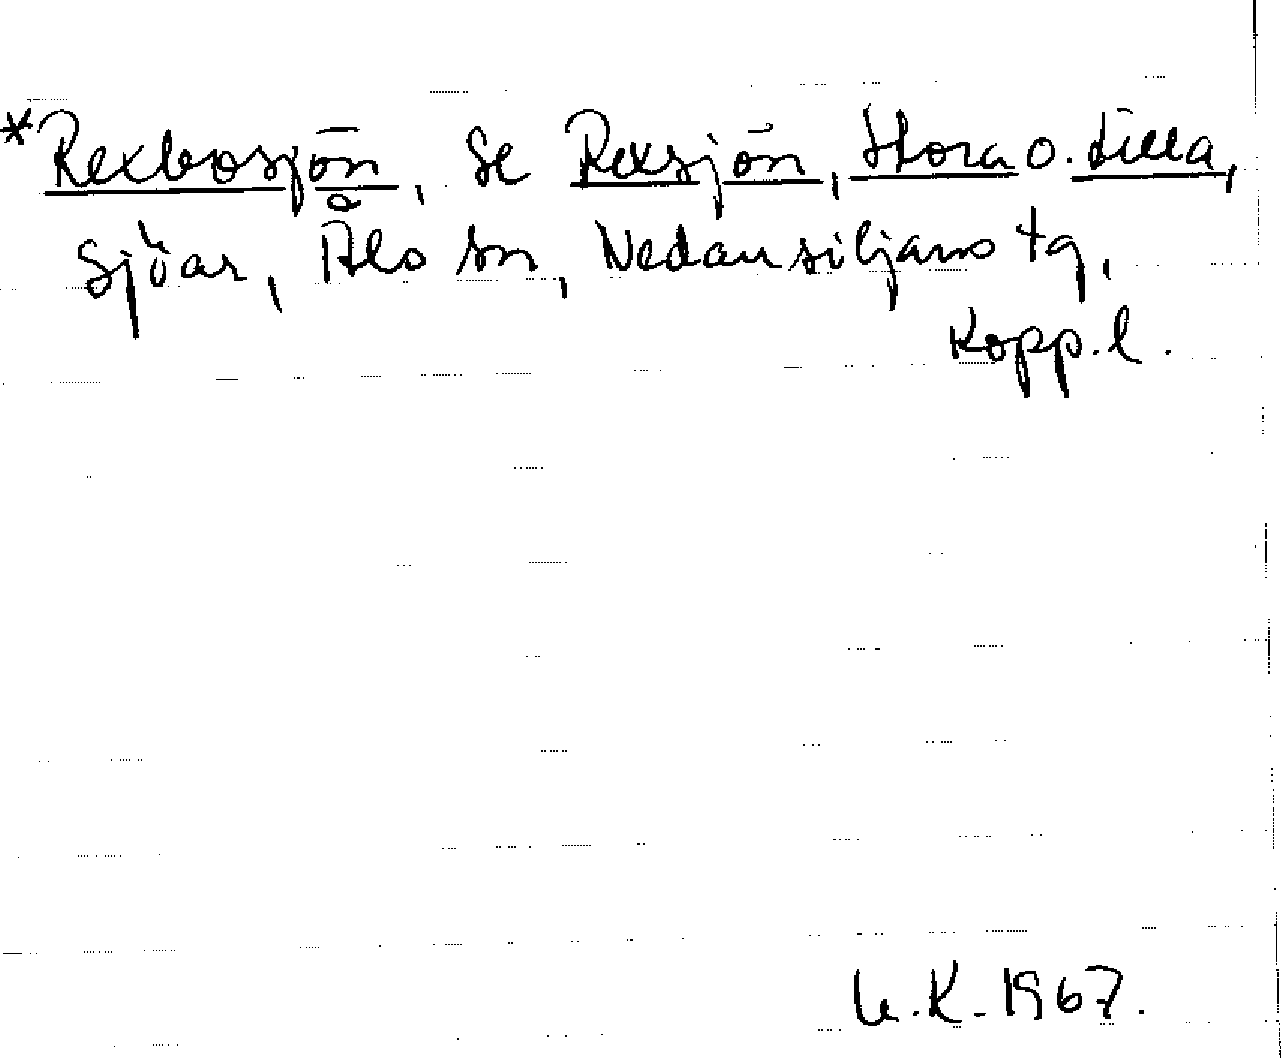 *Rexbosjön, se Rexsjön, Stora o. Lilla,
sjöar, Åls sn, Nedansiljans tg,
Kopp. l.
U.K. 1967.